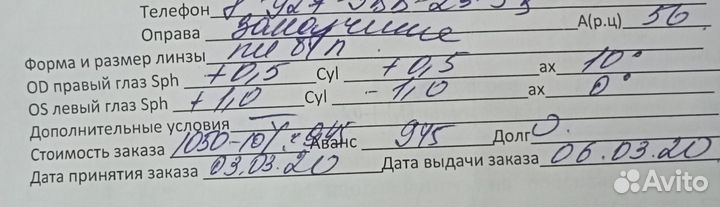 Телефон 8 927
Оправа замочише А(р.ц) 56
Форма и размер линзы
OD правый глаз Sph +0,5 Cyl +0,5 ax 10°
OS левый глаз Sph +1,0 Cyl -1,0 ax 0°
Дополнительные условия —
Стоимость заказа 1050-10%=945 Аванс 945 Долг 0.
Дата принятия заказа 03.03.20 Дата выдачи заказа 06.03.20
Avito